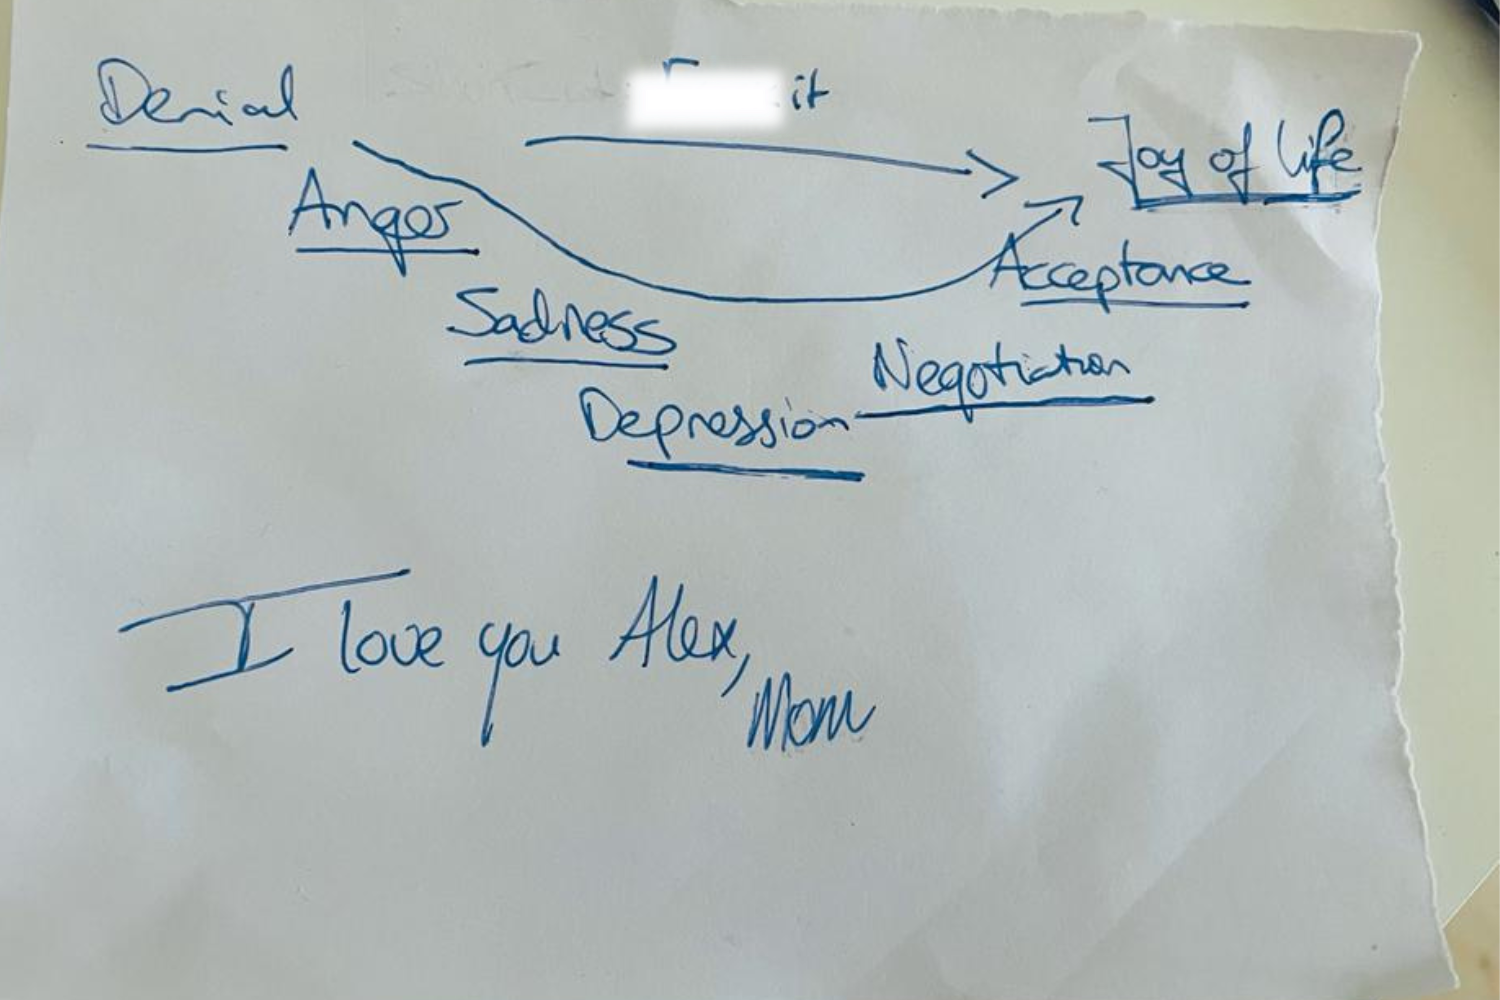 Denial
it
Joy of life
Anger
Acceptance
Sadness
Negotiation
Depression
I love you Alex,
Mom